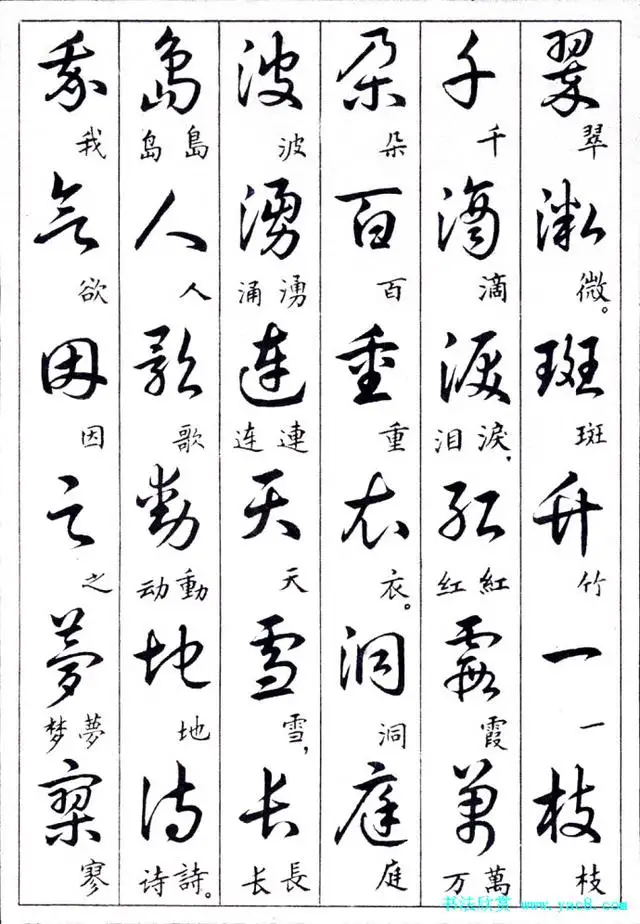 翠微斑竹一枝
翠 微。 斑 竹 一 枝
千滴淚紅霞萬
千 滴 淚，泪 紅红 霞 萬万
朵百重衣洞庭
朵 百 重 衣。 洞 庭
波湧連天雪長
波 湧涌 連连 天 雪， 長长
島人歌動地詩
島岛 人 歌 動动 地 詩。诗
我欲因之夢寥
我 欲 因 之 夢梦 寥
书法欣赏 www.yac8.com